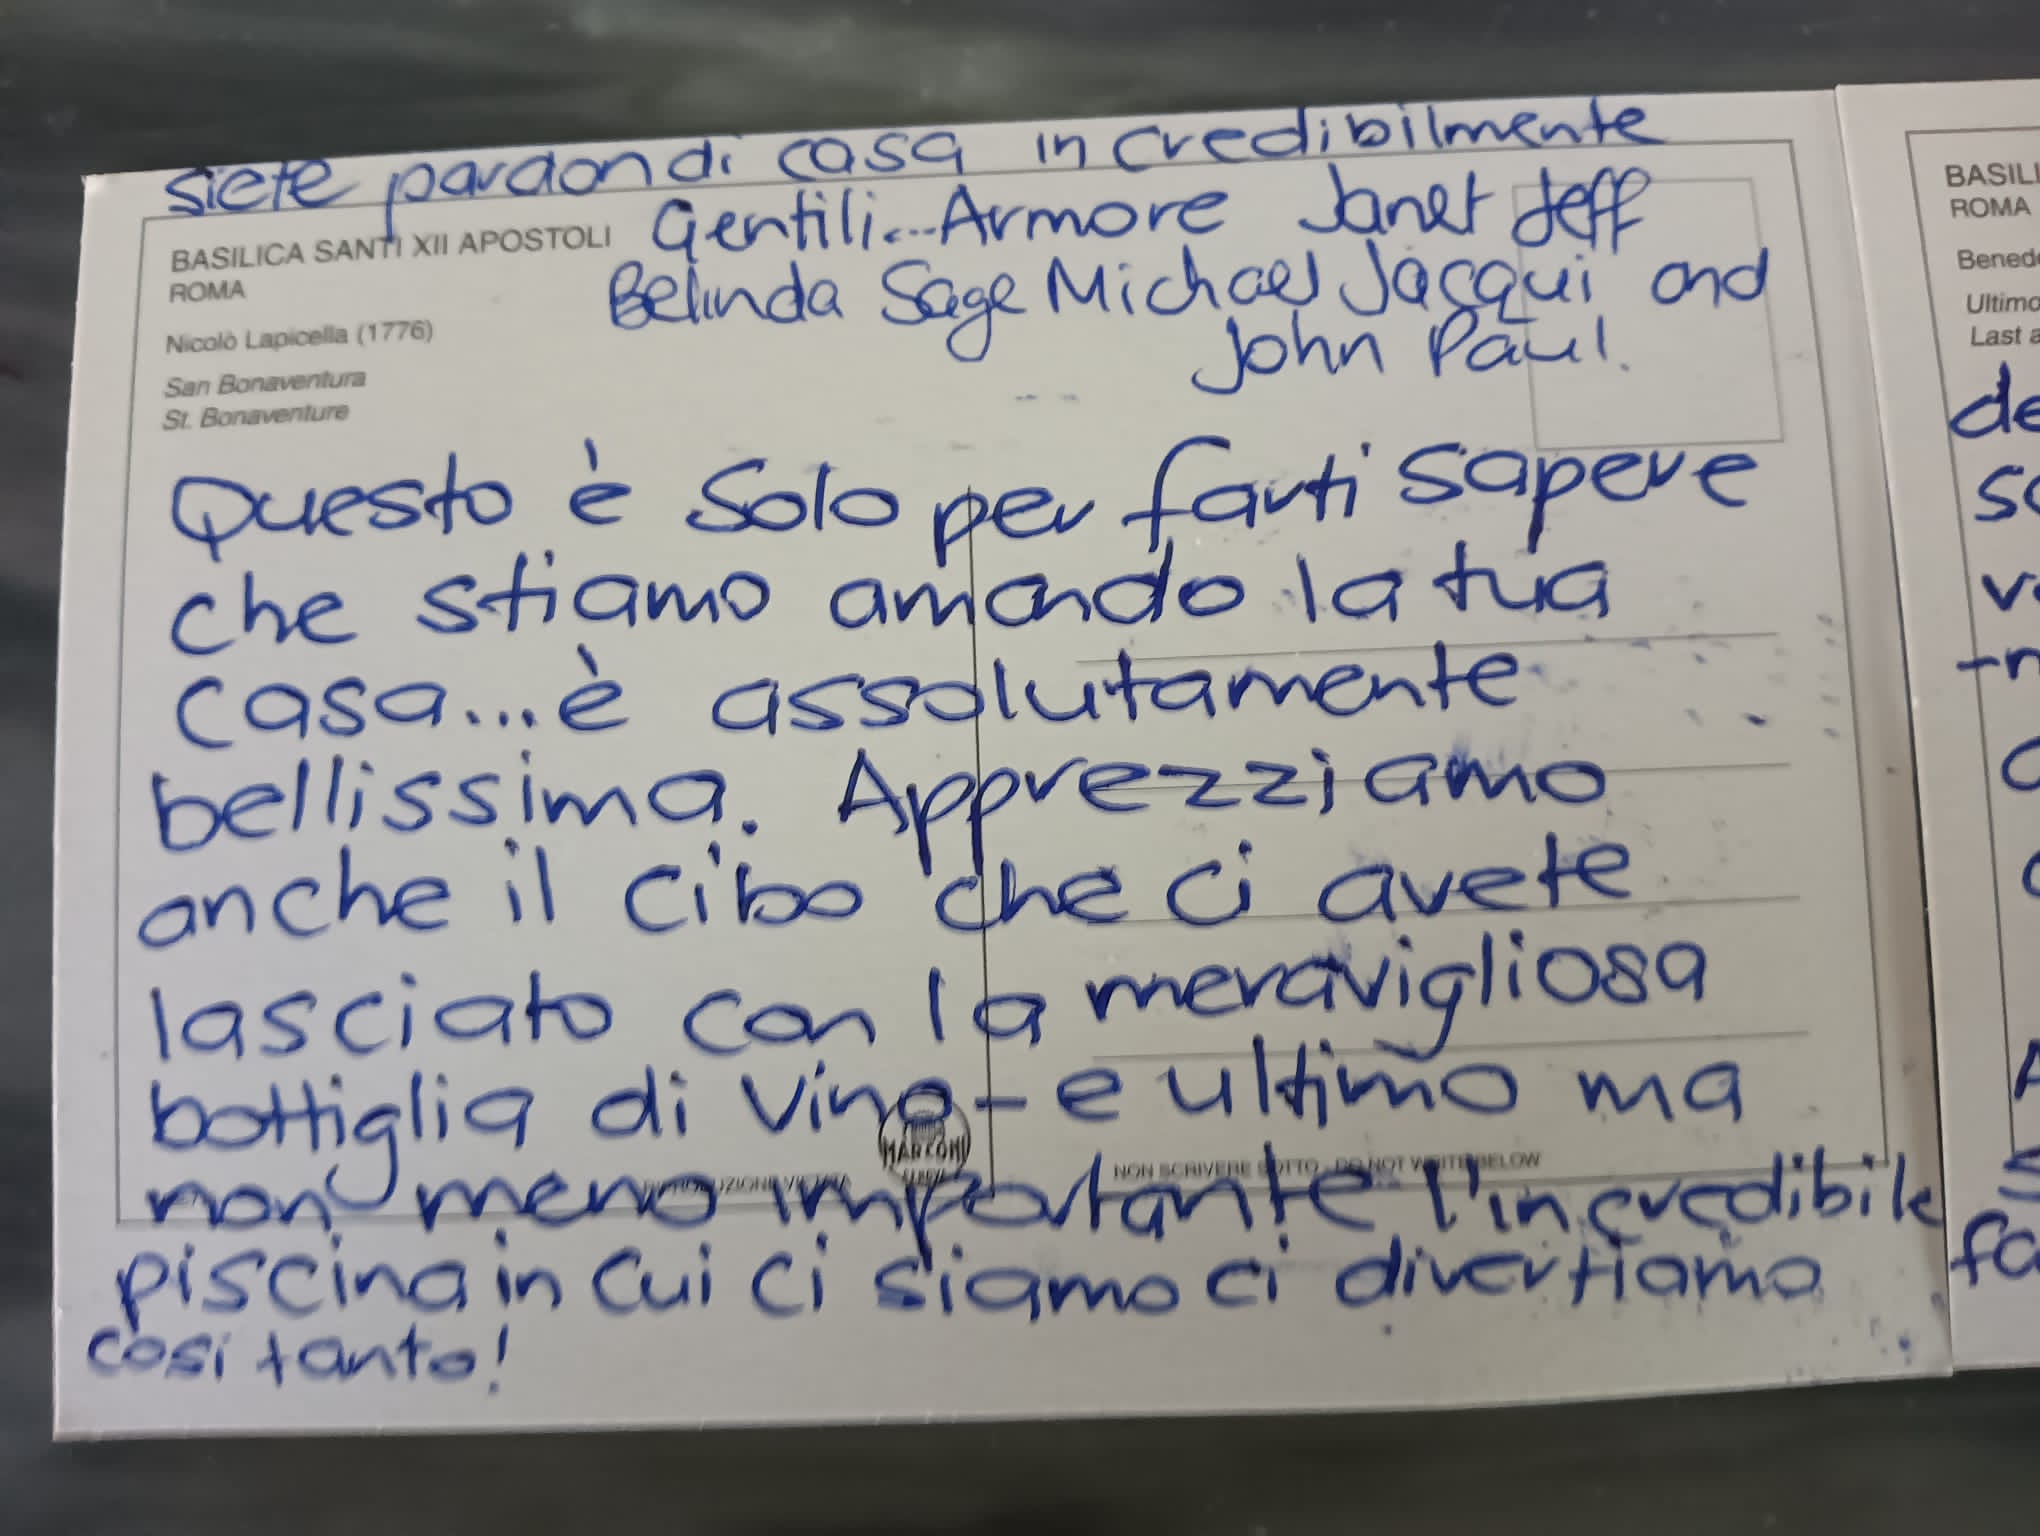 siete pardon di casa incredibilmente
Gentili...Armore Janet Jeff
Belinda Sage Michael Jacqui and
John Paul.
BASILICA SANTI XII APOSTOLI
ROMA
Nicolò Lapicella (1776)
San Bonaventura
St. Bonaventure
Questo è solo per farti sapere
che stiamo amando la tua
casa...è assolutamente
bellissima. Apprezziamo
anche il cibo che ci avete
lasciato con la meravigliosa
bottiglia di vino - e ultimo ma
MARCONI
RIPRODUZIONE VIETATA
NON SCRIVERE SOTTO - DO NOT WRITE BELOW
non meno importante l'incredibile
piscina in cui ci siamo ci divertiamo
cosi tanto!
BASILI
ROMA
Bened
Ultimo
Last a
de
so
-n
A
S
fa